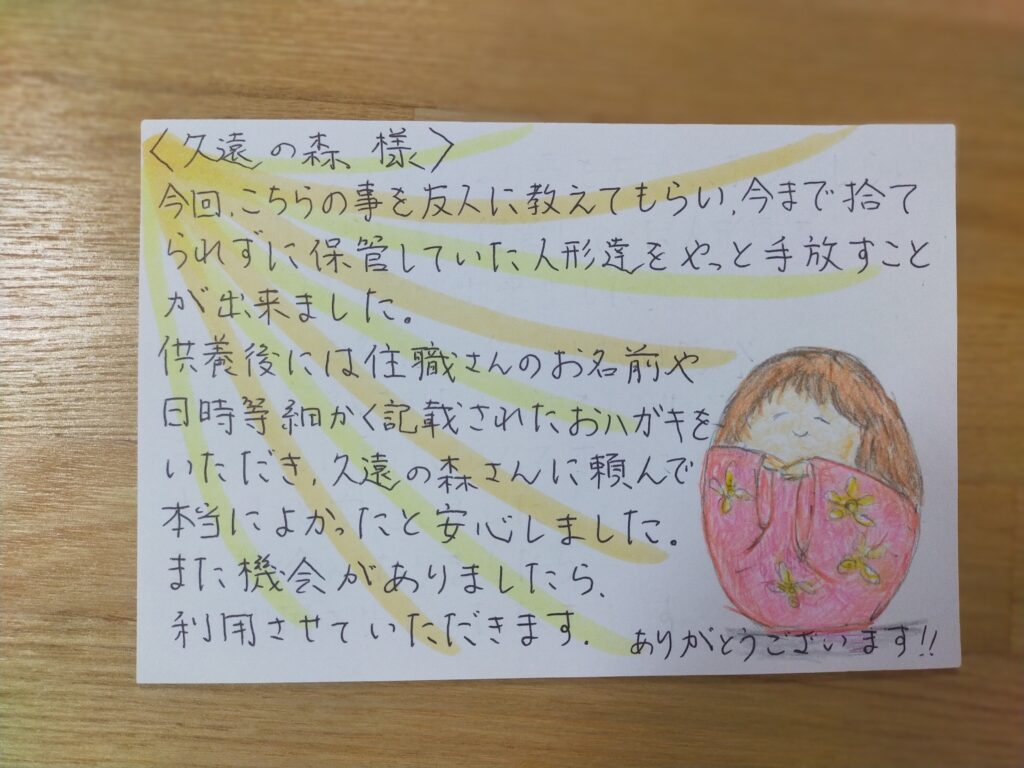 〈久遠の森 様〉
今回、こちらの事を友人に教えてもらい、今まで捨て
られずに保管していた人形達をやっと手放すこと
が出来ました。
供養後には住職さんのお名前や
日時等細かく記載されたおハガキを
いただき、久遠の森さんに頼んで
本当によかったと安心しました。
また機会がありましたら、
利用させていただきます.
ありがとうございます!!